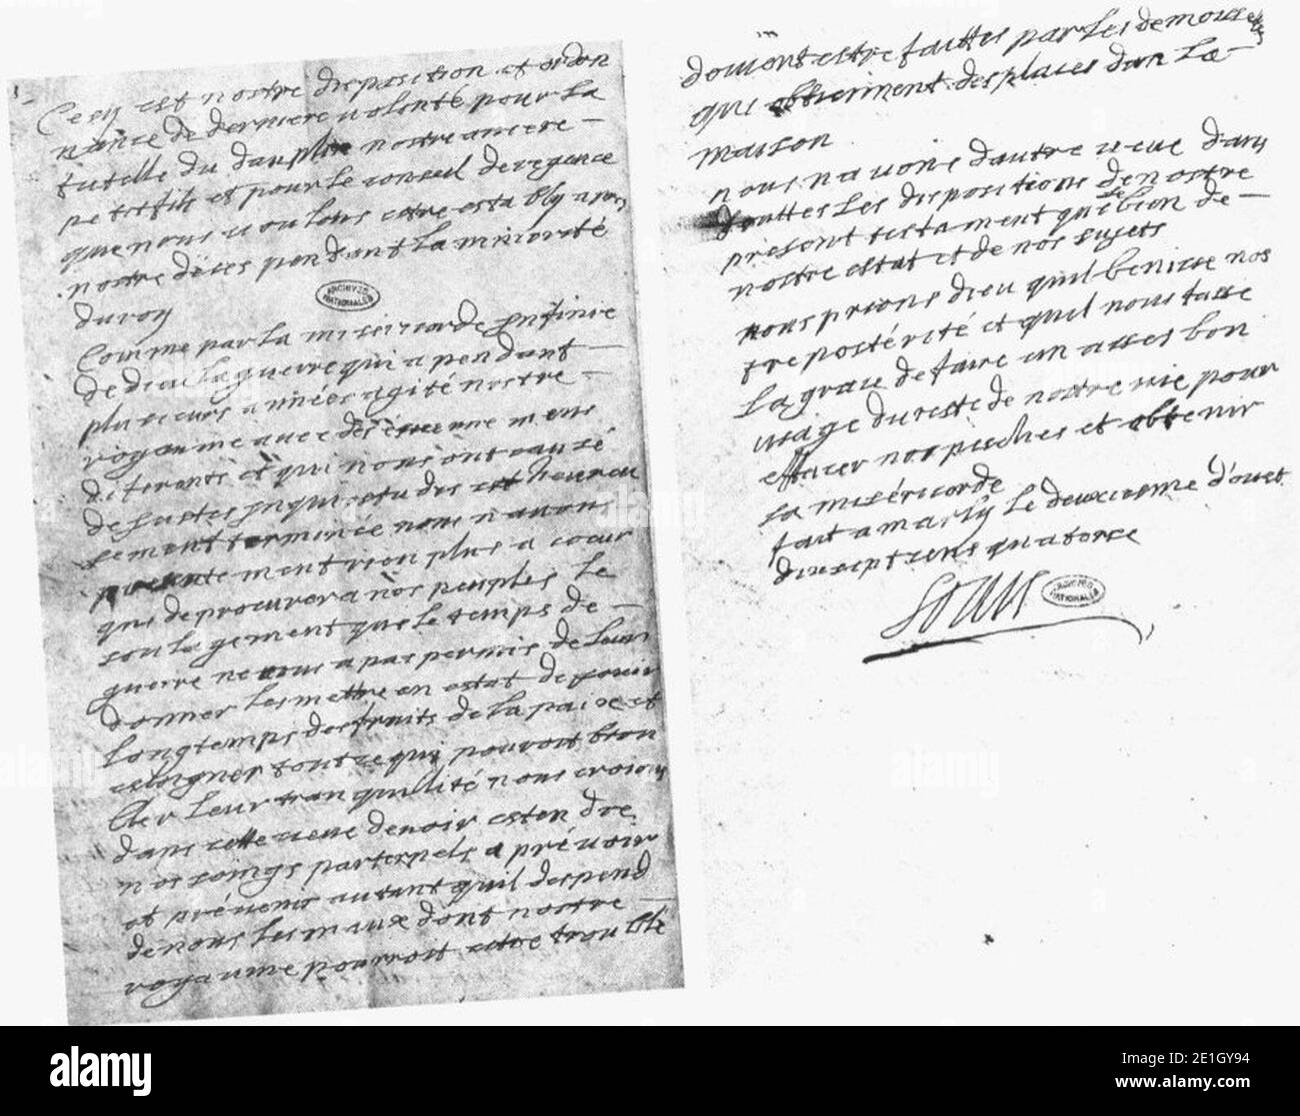 Cecy est nostre disposition et ordon
nance de derniere volonté pour la
tutelle du dauphin nostre arriere
petit fils et pour le conseil de regence
que nous voulons estre estably apres
nostre déces pendant la minorité
du roy
ARCHIVES
NATIONALES
Comme par la misericorde infinie
de dieu la guerre qui a pendant
plusieurs années agité nostre
royaume avec des évenemens
diferants et qui nous ont causé
de justes inquiestudes est heureu
sement terminée nous n'avons
présentement rien plus a coeur
que de procurer a nos peuples le
soulagement que le temps de
guerre ne nous a pas permis de leur
donner les mettre en estat de jouir
longtemps des fruits de la paix et
esloigner tout ce qui pouroit trou
bler leur tranquillité nous croions
dans cette veue devoir estendre
nos soings paternels a prévoir
et prévenir autant quil despend
de nous les maux dont nostre
royaume pourroit estre troublé
doivent estre faittes par les demoiselles
qui obtiennent des places dans la
maison
nous n'avons d'autre veue dans
touttes les dispositions de nostre
présent testament que le bien de
nostre estat et de nos sujets
nous prions dieu quil benisse nos
tre postérité et quil nous fasse
la grace de faire un asses bon
usage du reste de nostre vie pour
effacer nos peschés et obtenir
sa miséricorde
fait a marly le deuxiesme d'oust
dix sept cens quatorze
Louis
ARCHIVES
NATIONALES
alamy
Image ID: 2E1GY94
www.alamy.com